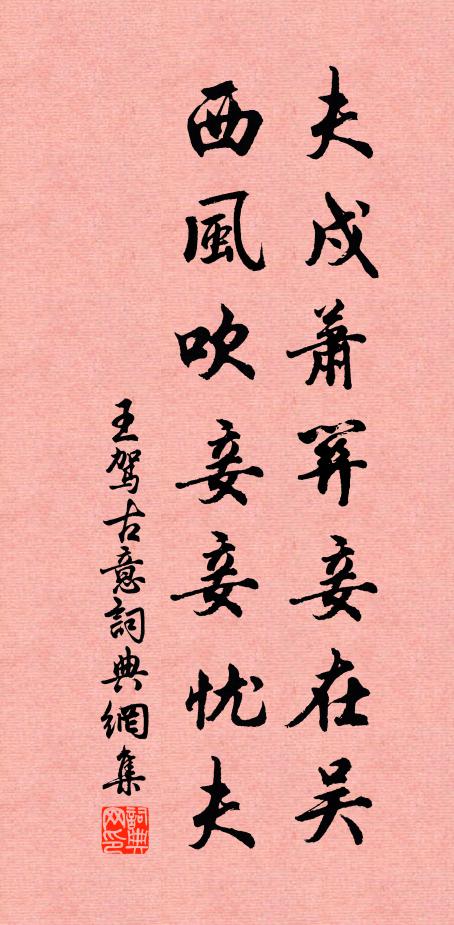 夫戍蕭關妾在吴
西風吹妾妾忧夫
王駕古意詞典網集
詞典网印